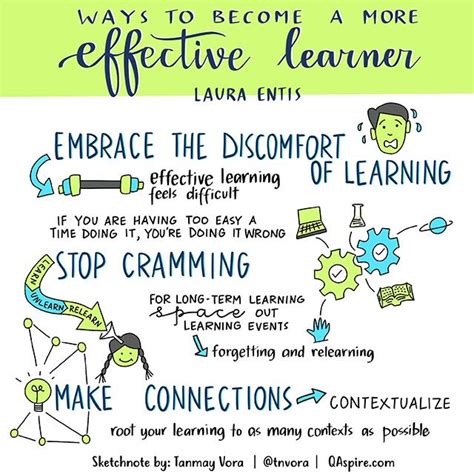 WAYS TO BECOME A MORE
effective learner
LAURA ENTIS
EMBRACE THE DISCOMFORT
OF LEARNING
effective learning
feels difficult
IF YOU ARE HAVING TOO EASY A
TIME DOING IT, YOU'RE DOING IT WRONG
STOP CRAMMING
LEARN
UNLEARN
RELEARN
FOR LONG-TERM LEARNING
space OUT
LEARNING EVENTS
forgetting and relearning
MAKE CONNECTIONS
CONTEXTUALIZE
root your learning to as many contexts as possible
Sketchnote by: Tanmay Vora | @tnvora | QAspire.com